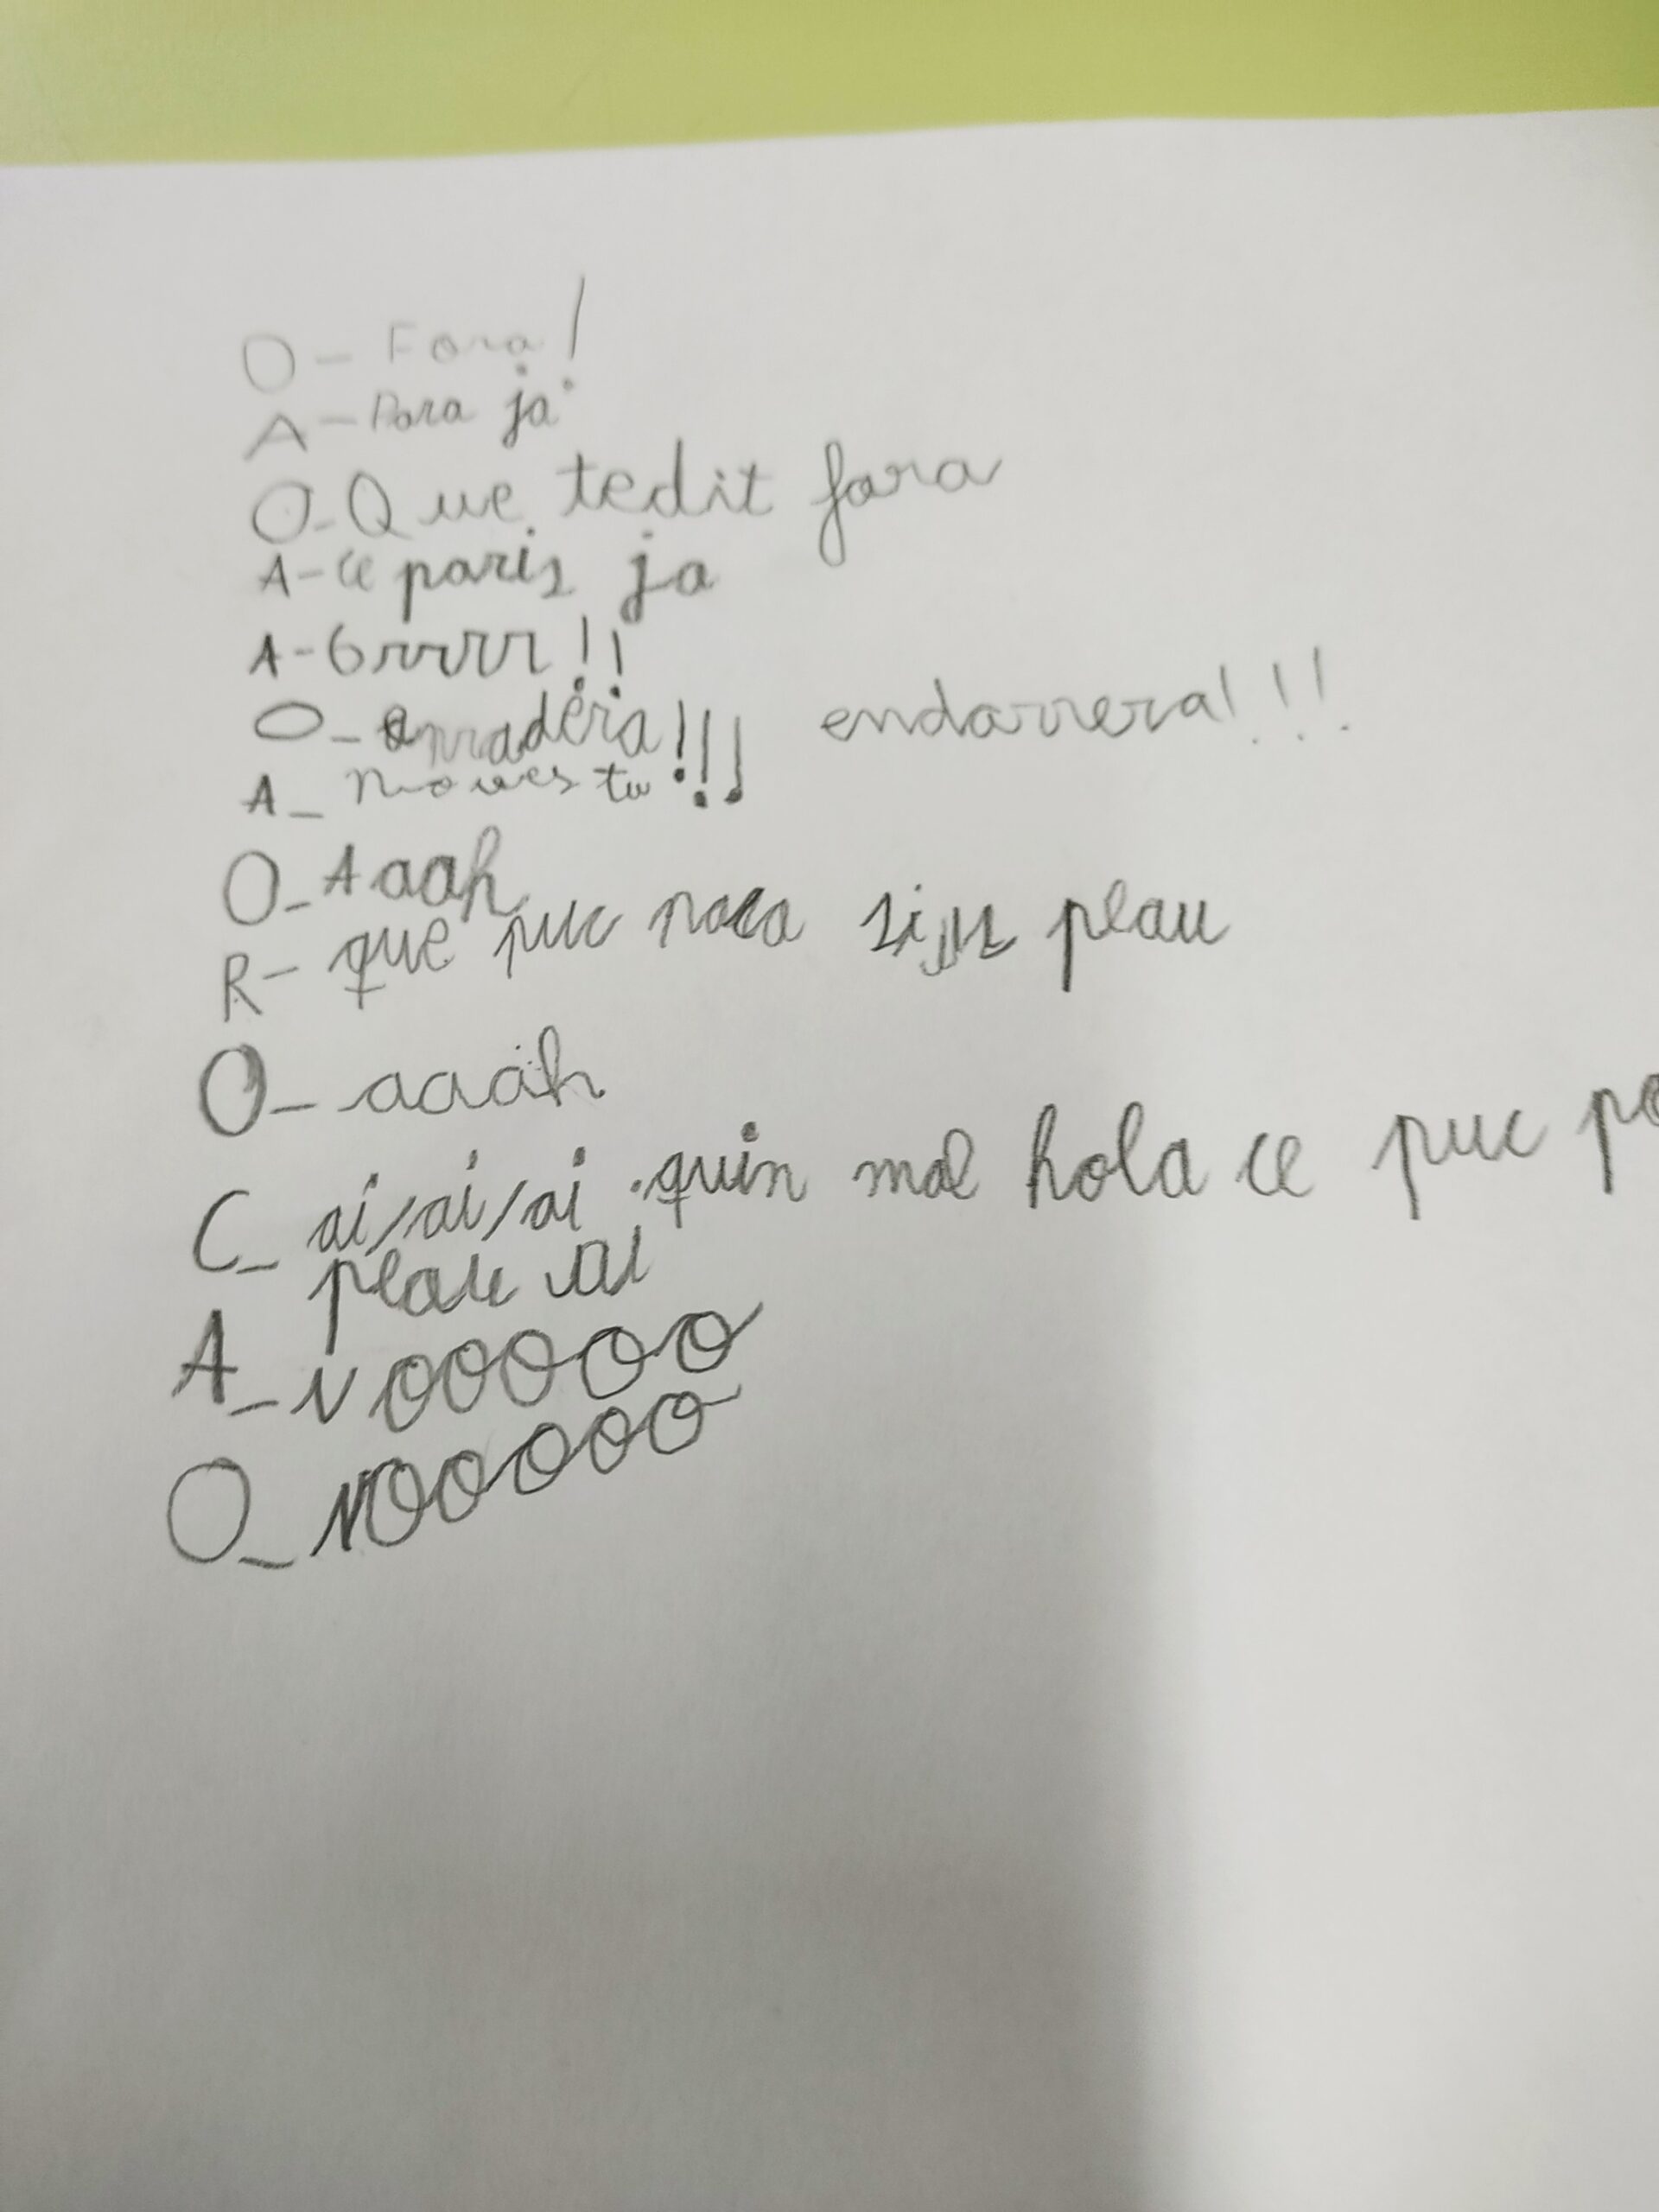 O - Fora!
A - Para ja
O - Que tedit fora
A - Ce paris ja
A - Grrrr!!
O - enradera!!! endarrera!!!
A - Mo ves tu
O - Aaah
R - que puc pasa sius plau
O - aaah
C - ai, ai, ai quin mal hola ce puc pa
plau ai
A - Nooooo
O - Nooooo